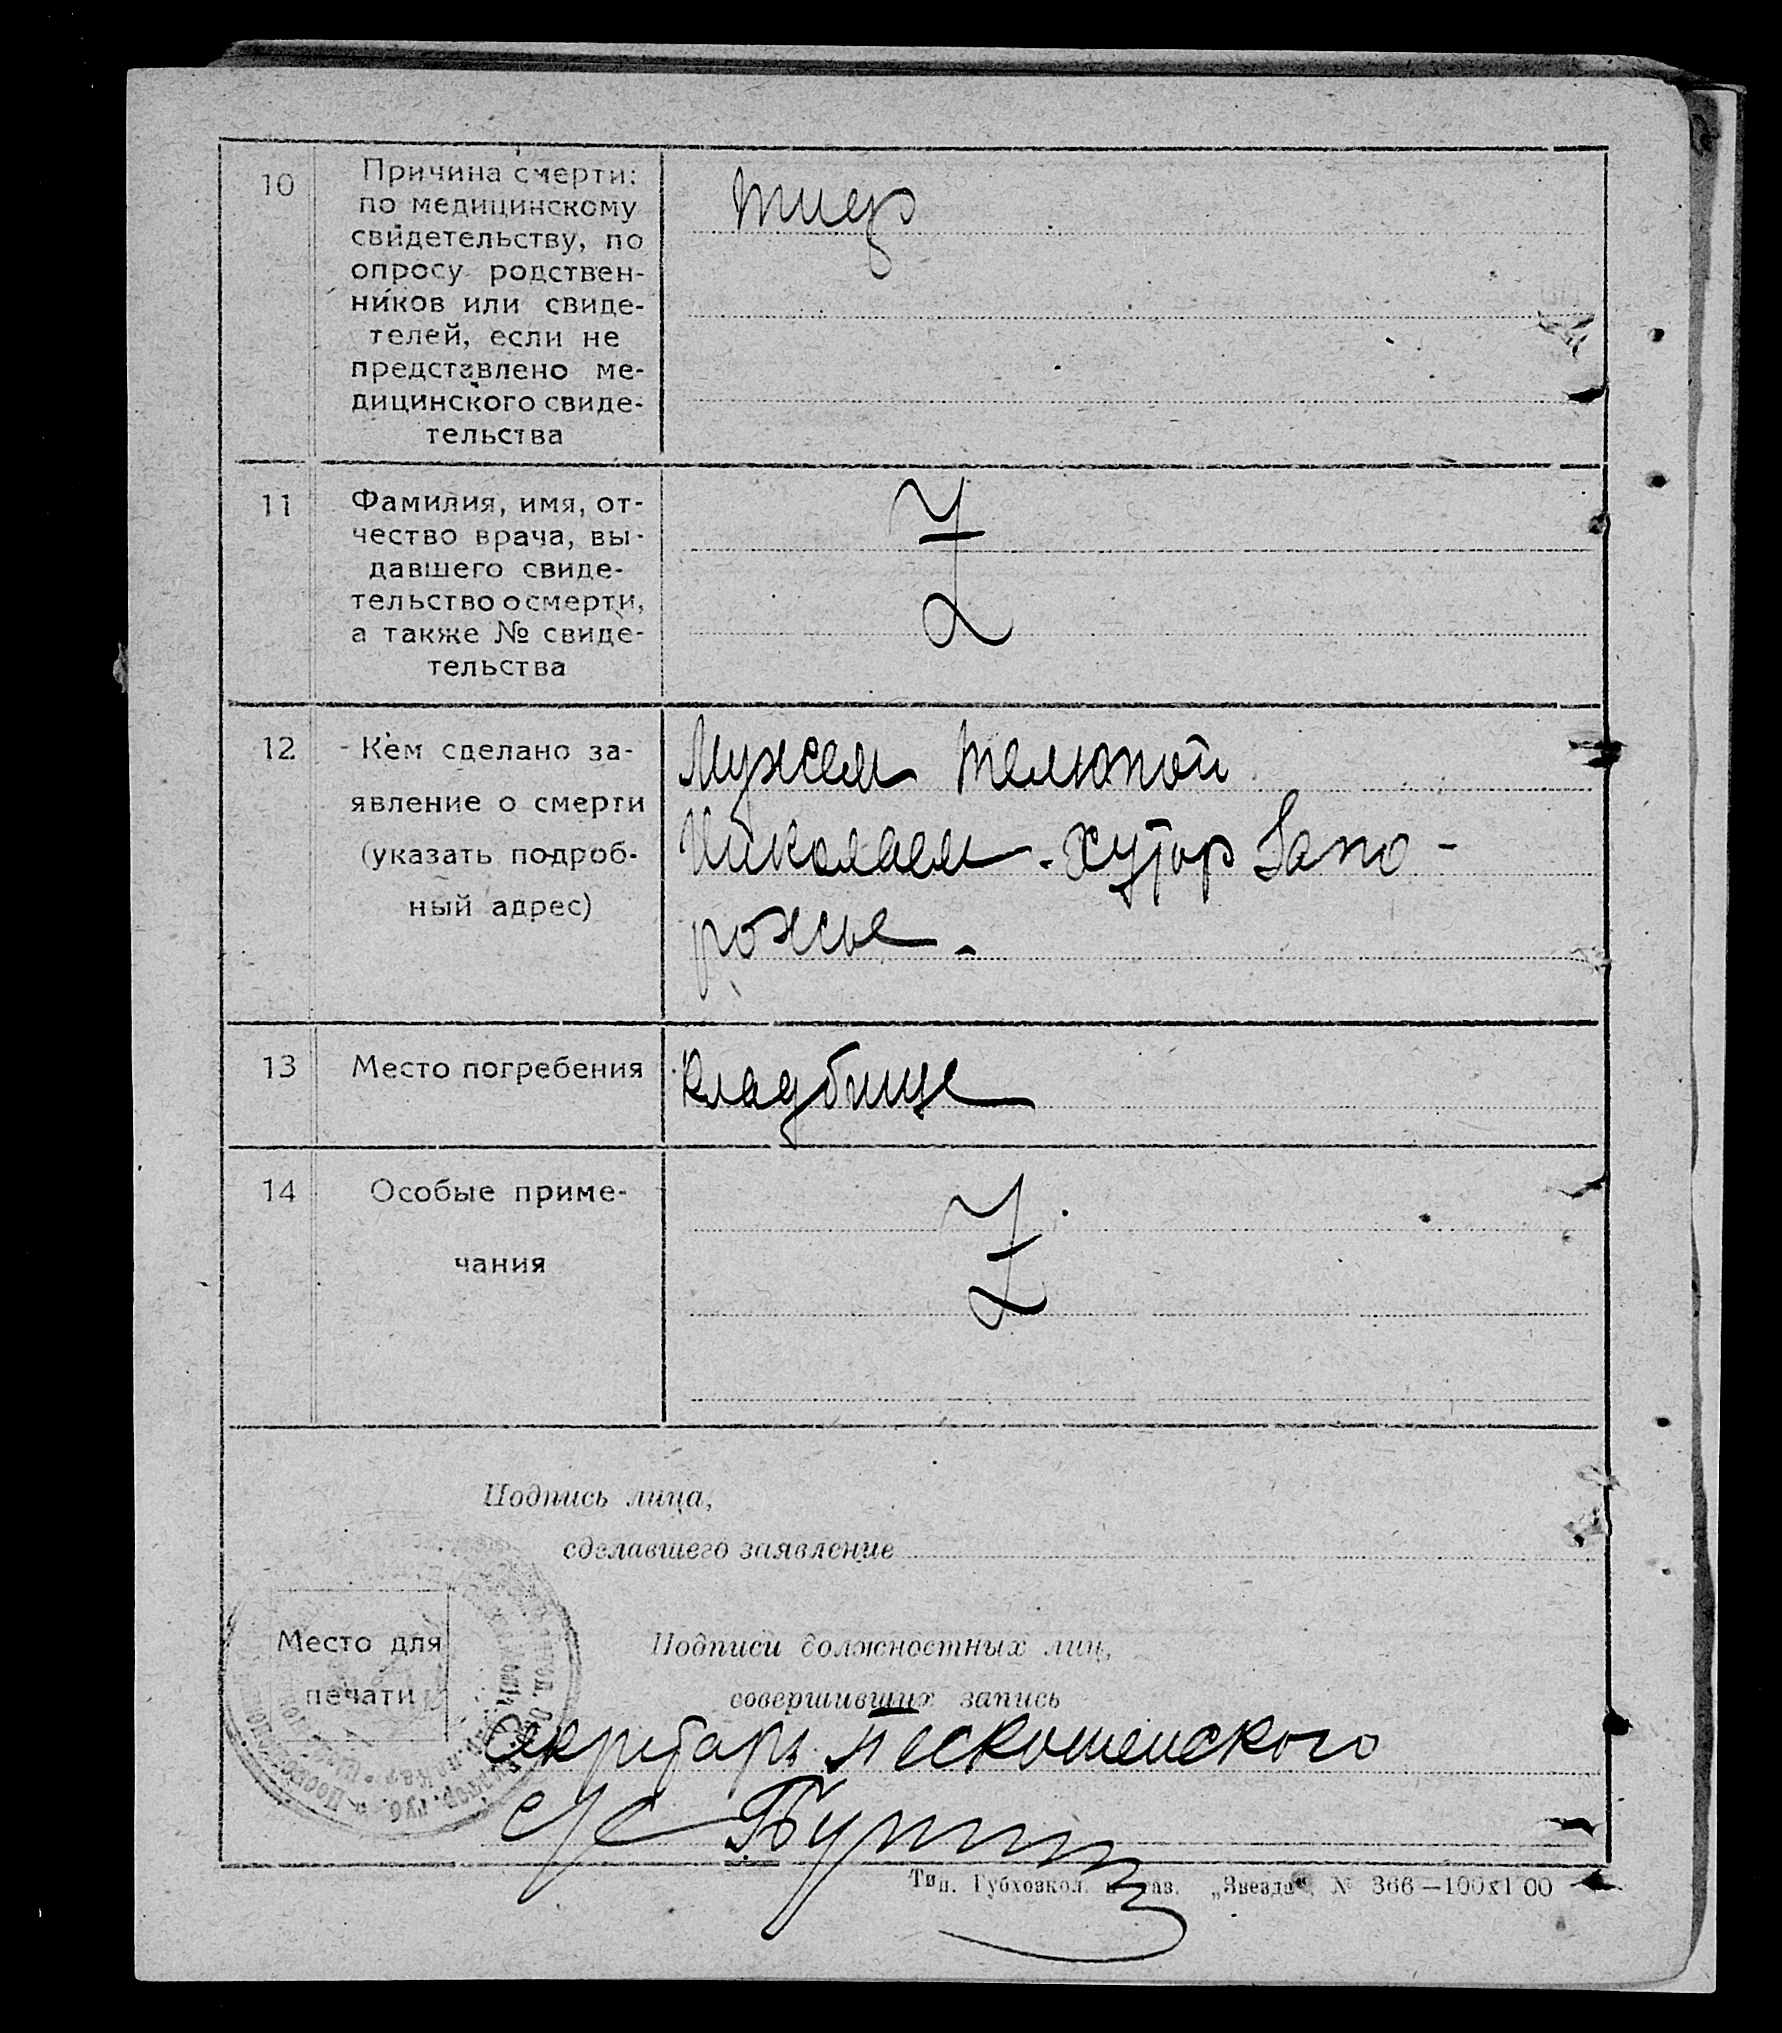 10
Причина смерти:
по медицинскому
свидетельству, по
опросу родствен-
ников или свиде-
телей, если не
представлено ме-
дицинского свиде-
тельства
11
Фамилия, имя, от-
чество врача, вы-
давшего свиде-
тельство о смерти,
а также № свиде-
тельства
Z
12
Кем сделано за-
явление о смерти
(указать подроб-
ный адрес)
Мужем Телюпой
Николаем. хутор Запо-
рожье.
13
Место погребения
Кладбище
14
Особые приме-
чания
Z
Подпись лица,
сделавшего заявление
Место для
печати
Подписи должностных лиц,
совершивших запись
Секретарь
с/с
Тип. Губхозкол. газ. „Звезда“, № 366—100х1 00